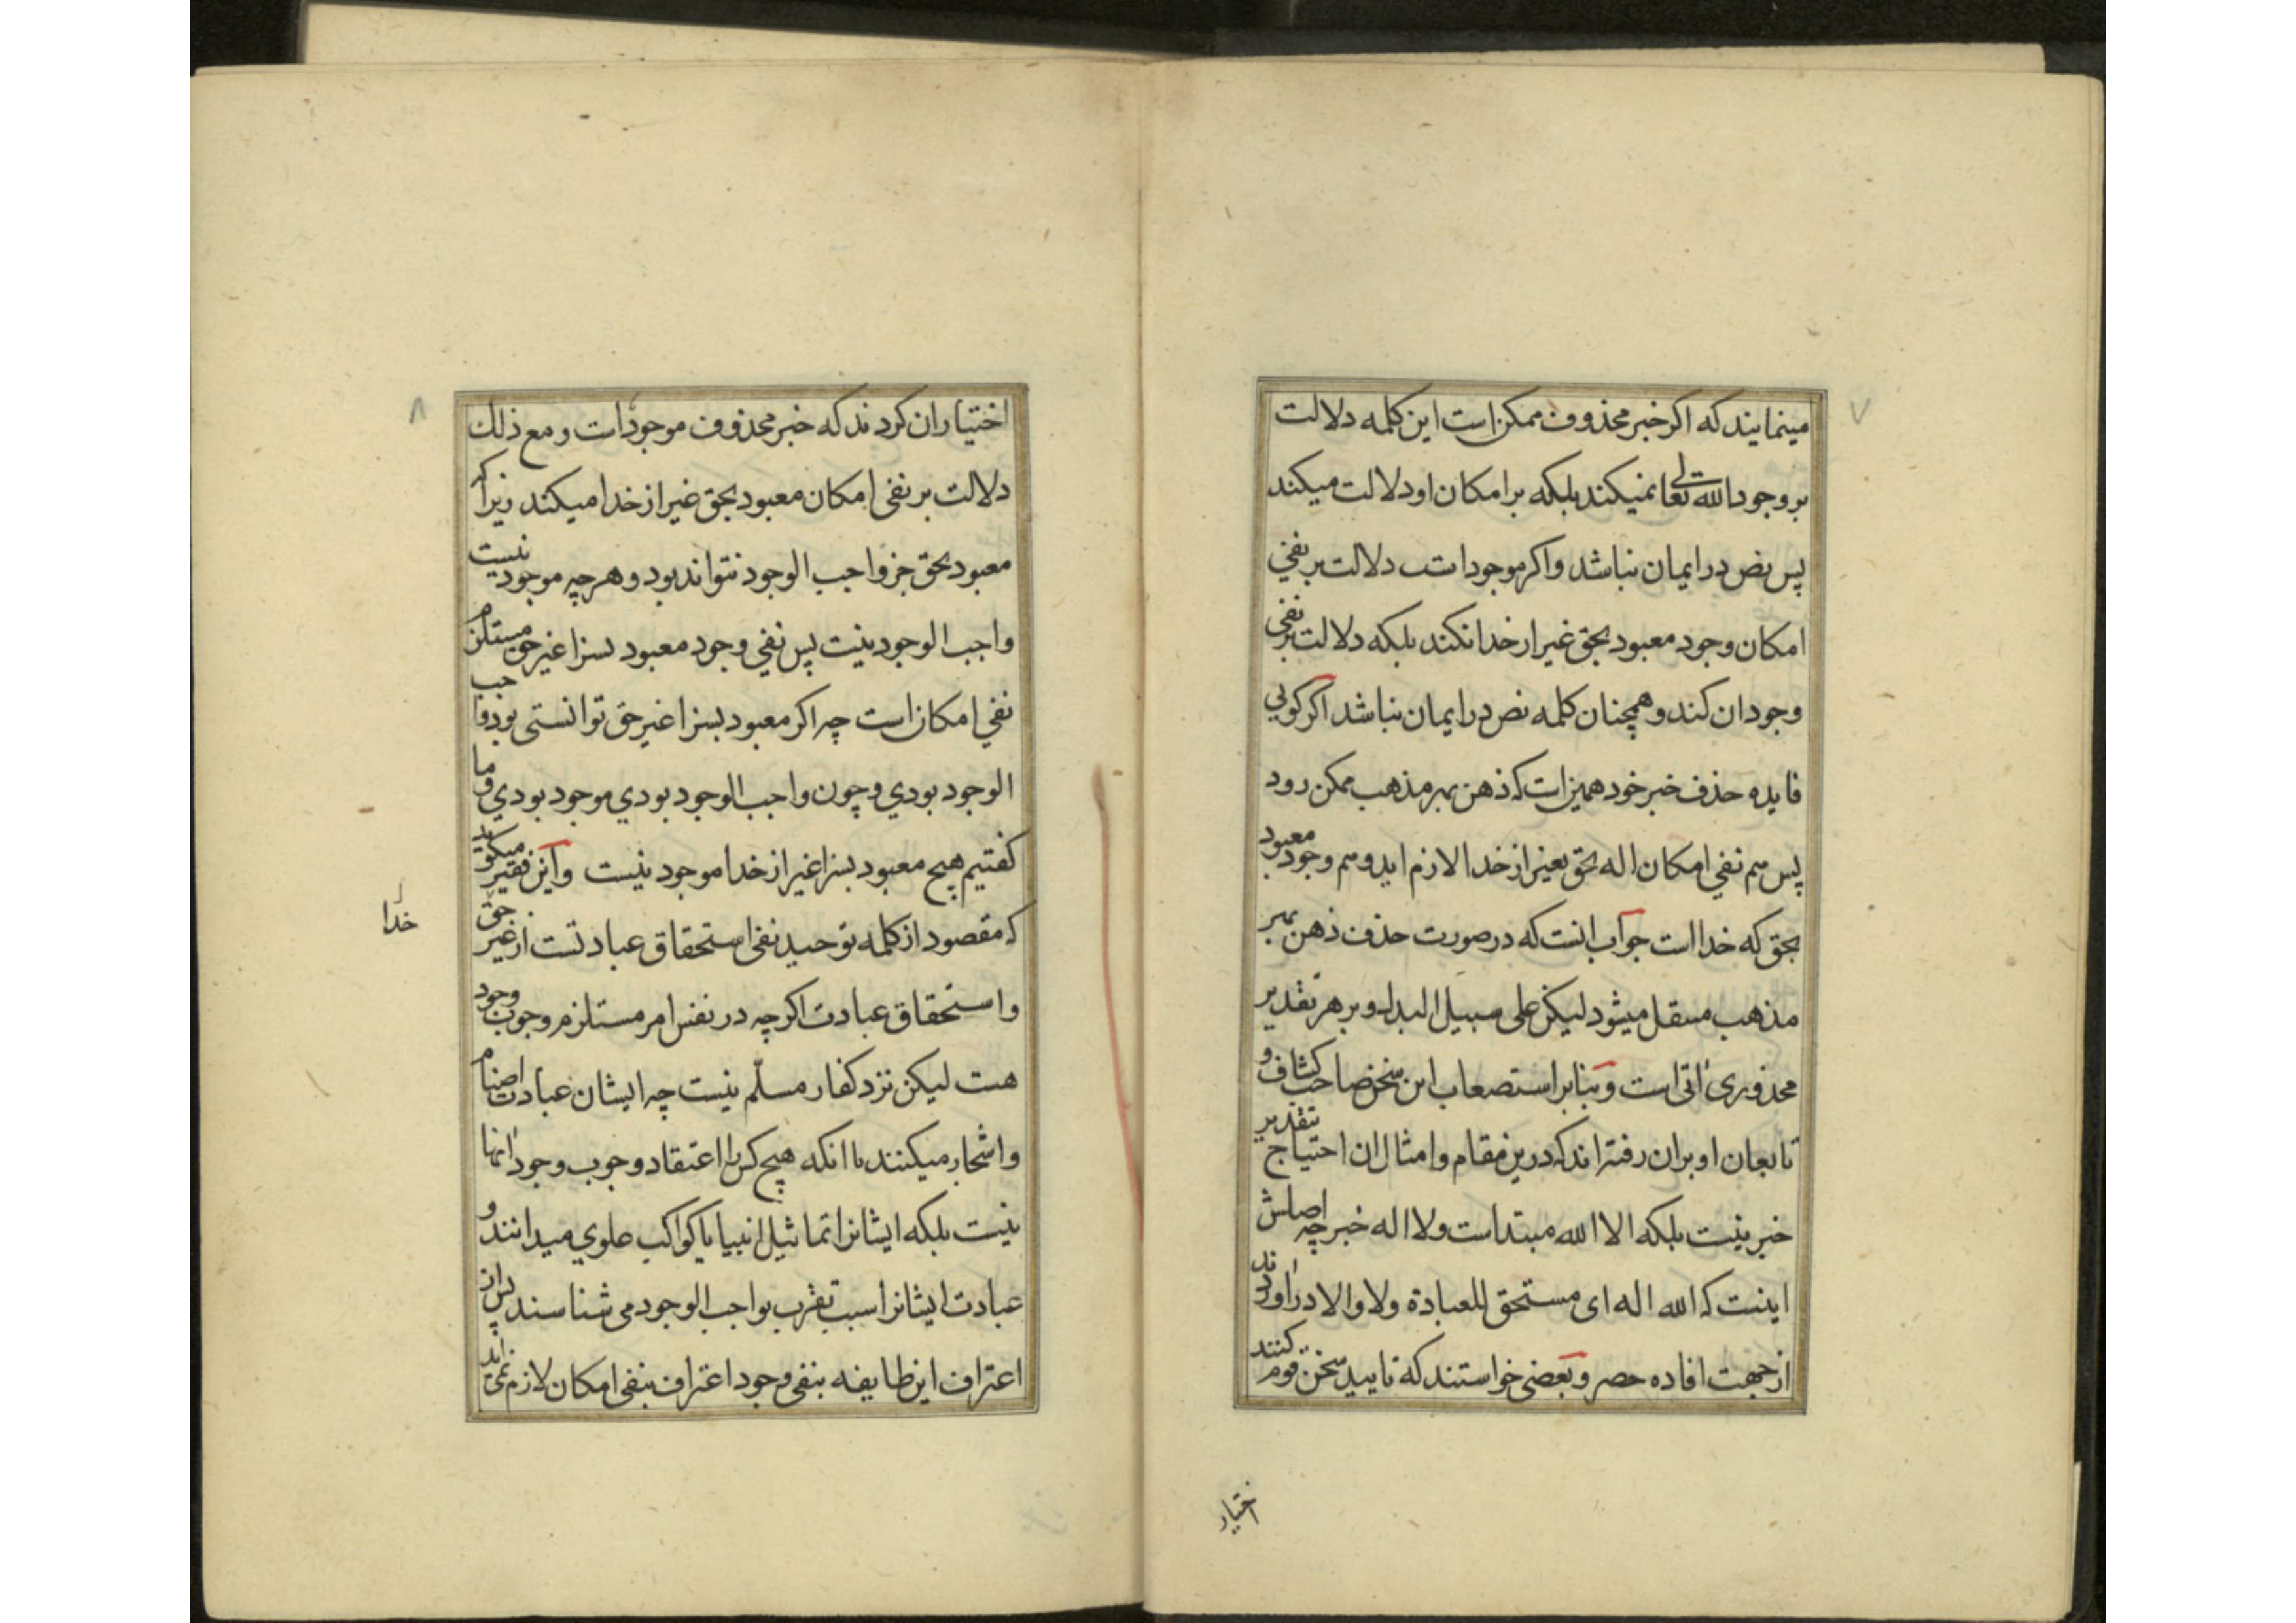 ۷
مینمایند که اکر خبر محذوف ممکن است این کلمه دلالت
بر وجود الله تعالی نمیکند بلکه بر امکان او دلالت میکند
پس نص در ایمان نباشد و اکر موجود است دلالت بر نفی
امکان وجود معبود بحق غیر از خدا نکند بلکه دلالت بر نفی
وجود ان کند و همچنان کلمه نص در ایمان نباشد اکر کویی
فایده حذف خبر خود همین است که ذهن بهر مذهب ممکن رود
پس هم نفی امکان اله بحق بغیر از خدا لازم اید و هم وجود معبود
بحق که خدا است جواب انست که در صورت حذف ذهن بهر
مذهب منتقل میشود لیکن علی سبیل البدل و بر هر تقدیر
محذوری اتی است و بنابر استصعاب این سخن صاحب کشاف و
تابعان او بران رفته اند که درین مقام و امثال ان احتیاج بتقدیر
خبر نیست بلکه الا الله مبتداست و لا اله خبر چه اصلش
اینست که الله اله ای مستحق للعبادة و لا و الا در اوردند
از جهت افاده حصر و بعضی خواستند که تایید سخن قوم کنند
اختیار
۸
اختیار ان کردند که خبر محذوف موجود است و مع ذلك
دلالت بر نفی امکان معبود بحق غیر از خدا میکند زیرا که
معبود بحق جز واجب الوجود نتواند بود و هر چه موجود نیست
واجب الوجود نیست پس نفی وجود معبود بسزا غیر حق مستلزم
نفی امکان است چه اکر معبود بسزا غیر حق توانستی بود واجب
الوجود بودی و چون واجب الوجود بودی موجود بودی و ما
کفتیم هیچ معبود بسزا غیر از خدا موجود نیست و این فقیر میکوید
که مقصود از کلمه توحید نفی استحقاق عبادتست از غیر حق
خدا
و استحقاق عبادت اکرچه در نفس امر مستلزم وجوب وجود
هست لیکن نزد کفار مسلّم نیست چه ایشان عبادت اصنام
و اشجار میکنند با انکه هیچ کس را اعتقاد وجوب وجود انها
نیست بلکه ایشانرا تماثیل انبیا یا کواکب علوی میدانند و
عبادت ایشانرا سبب تقرب بواجب الوجود می شناسند پس از
اعتراف این طایفه بنفی وجود اعتراف بنفی امکان لازم نمی اید